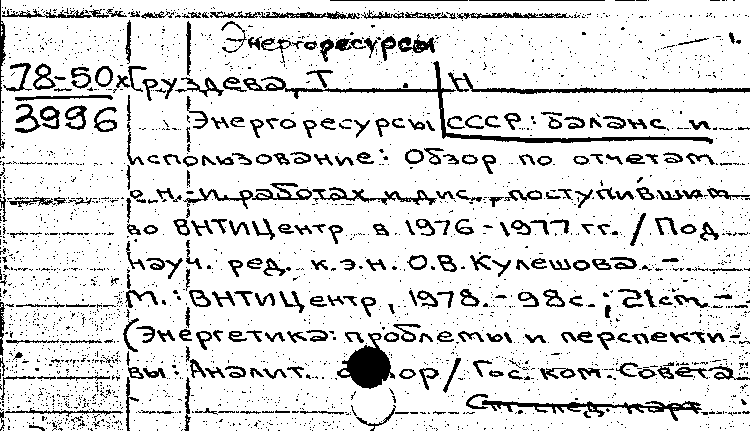 Энергоресурсы 1.
78-50х Груздева, Т. Н
3996 Энергоресурсы СССР: баланс и
использование: Обзор по отчетам
о н.-и. работах и дис., поступившим
во ВНТИЦентр в 1976-1977 гг. / Под
науч. ред. к.э.н. О.В. Кулешова. -
М.: ВНТИЦентр, 1978. - 98с.; 21см. -
(Энергетика: проблемы и перспекти-
вы: Аналит. / Гос. ком. Совета
См. след. карт.